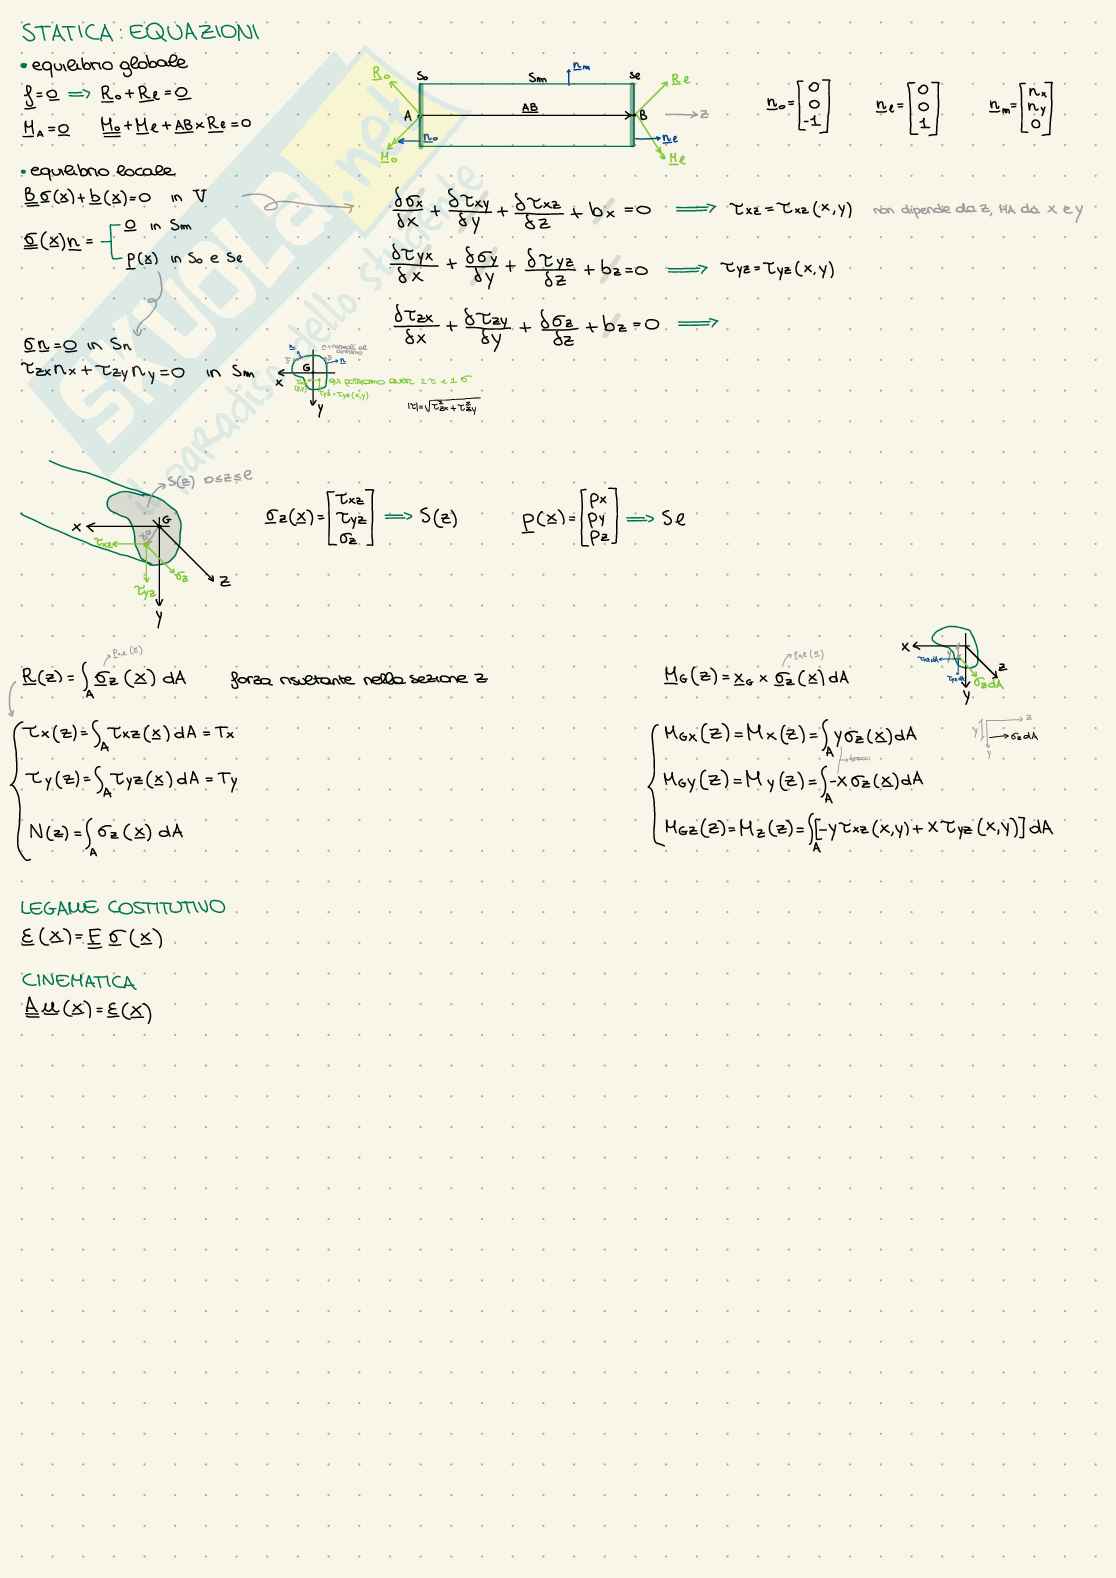 STATICA: EQUAZIONI
• equilibrio globale
f=0 ⟹ R₀+Re=0
M_A=0 M₀+Me+AB×Re=0
R₀ S₀ Sm n_m Se Re
A AB B z
M₀ n₀ n_e Me
n₀=[0 0 -1] n_e=[0 0 1] n_m=[n_x n_y 0]
• equilibrio locale
B σ(x)+b(x)=0 in V
σ(x)n= 0 in Sm
p(x) in S₀ e Se
δσx/δx + δτxy/δy + δτxz/δz + bx =0 ⟹ τxz=τxz(x,y) non dipende da z, MA da x e y
δτyx/δx + δσy/δy + δτyz/δz + bz=0 ⟹ τyz=τyz(x,y)
δτzx/δx + δτzy/δy + δσz/δz + bz=0 ⟹
σn=0 in Sn
τzx nx + τzy ny=0 in Sm
G n x y
qui possiamo aver 2τ e 1σ
τyz=τyz(x,y)
|τ|=√τ²zx+τ²zy
S(z) 0≤z≤e
x G τxz τyz σz z y
σz(x)=[τxz τyz σz] ⟹ S(z)
p(x)=[px py pz] ⟹ Se
R(z)=∫_A σz(x) dA forza risultante nella sezione z
τx(z)=∫_A τxz(x)dA=Tx
τy(z)=∫_A τyz(x) dA=Ty
N(z)=∫_A σz(x) dA
M_G(z)=x_G × σz(x)dA
x z y σzdA
M_Gx(z)=Mx(z)=∫_A yσz(x)dA
z y σzdA
M_Gy(z)=My(z)=∫_A -xσz(x)dA
M_Gz(z)=Mz(z)=∫_A[-yτxz(x,y)+xτyz(x,y)]dA
LEGAME COSTITUTIVO
ε(x)=E σ(x)
CINEMATICA
A u(x)=ε(x)
SKUOLA.net
il paradiso dello studente